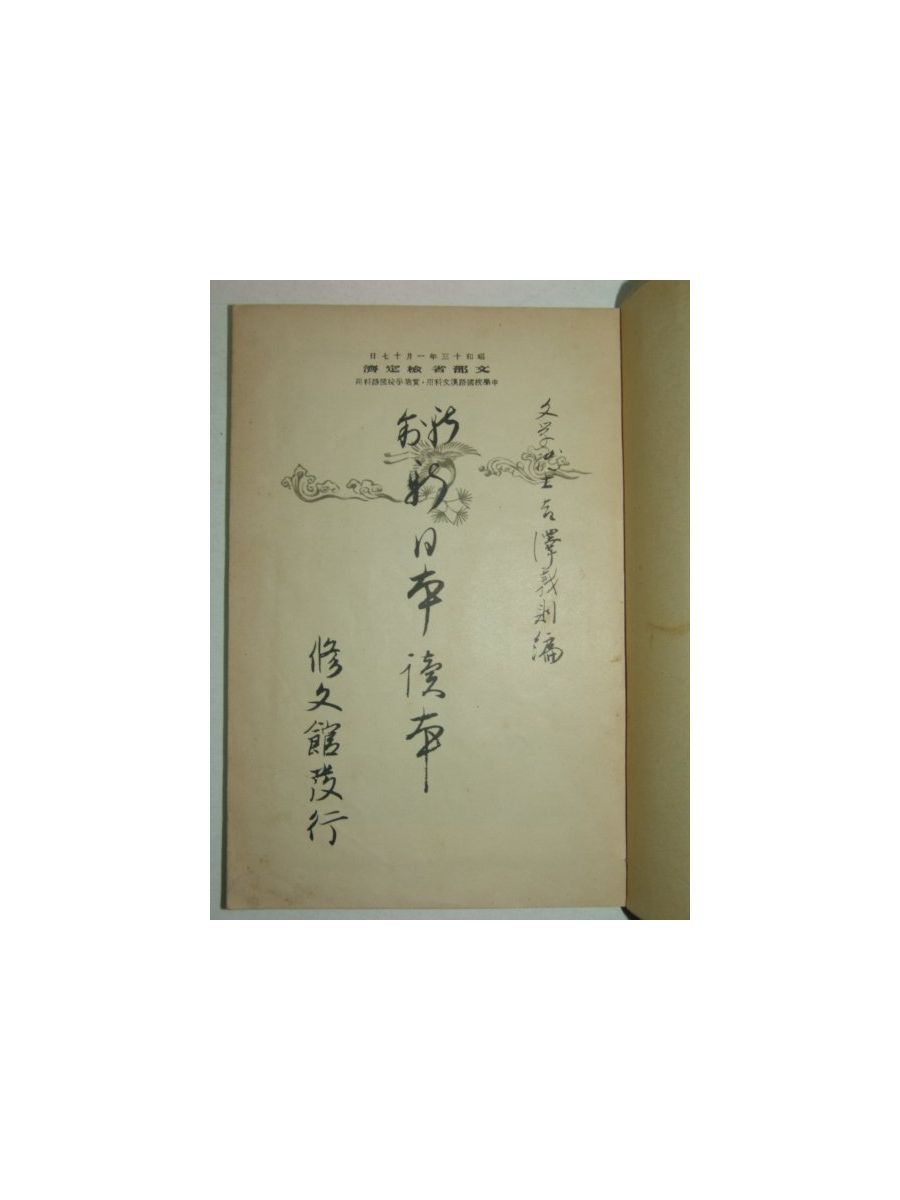 昭和十三年一月十七日
文部省檢定濟
中學校國語漢文科用・實業學校國語科用
文学博士吉澤義則編
新制
新日本讀本
修文館發行